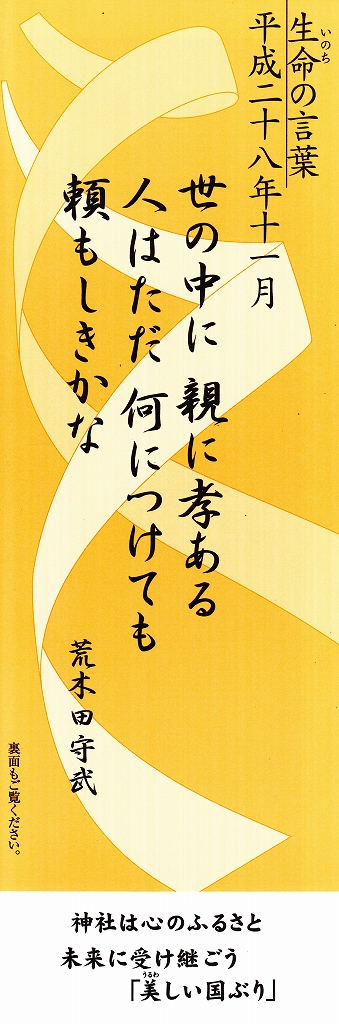 生命の言葉
いのち
平成二十八年十一月
世の中に 親に孝ある
人はただ 何につけても
頼もしきかな
荒木田守武
裏面もご覧ください。
神社は心のふるさと
未来に受け継ごう
「美しい国ぶり」
うるわ